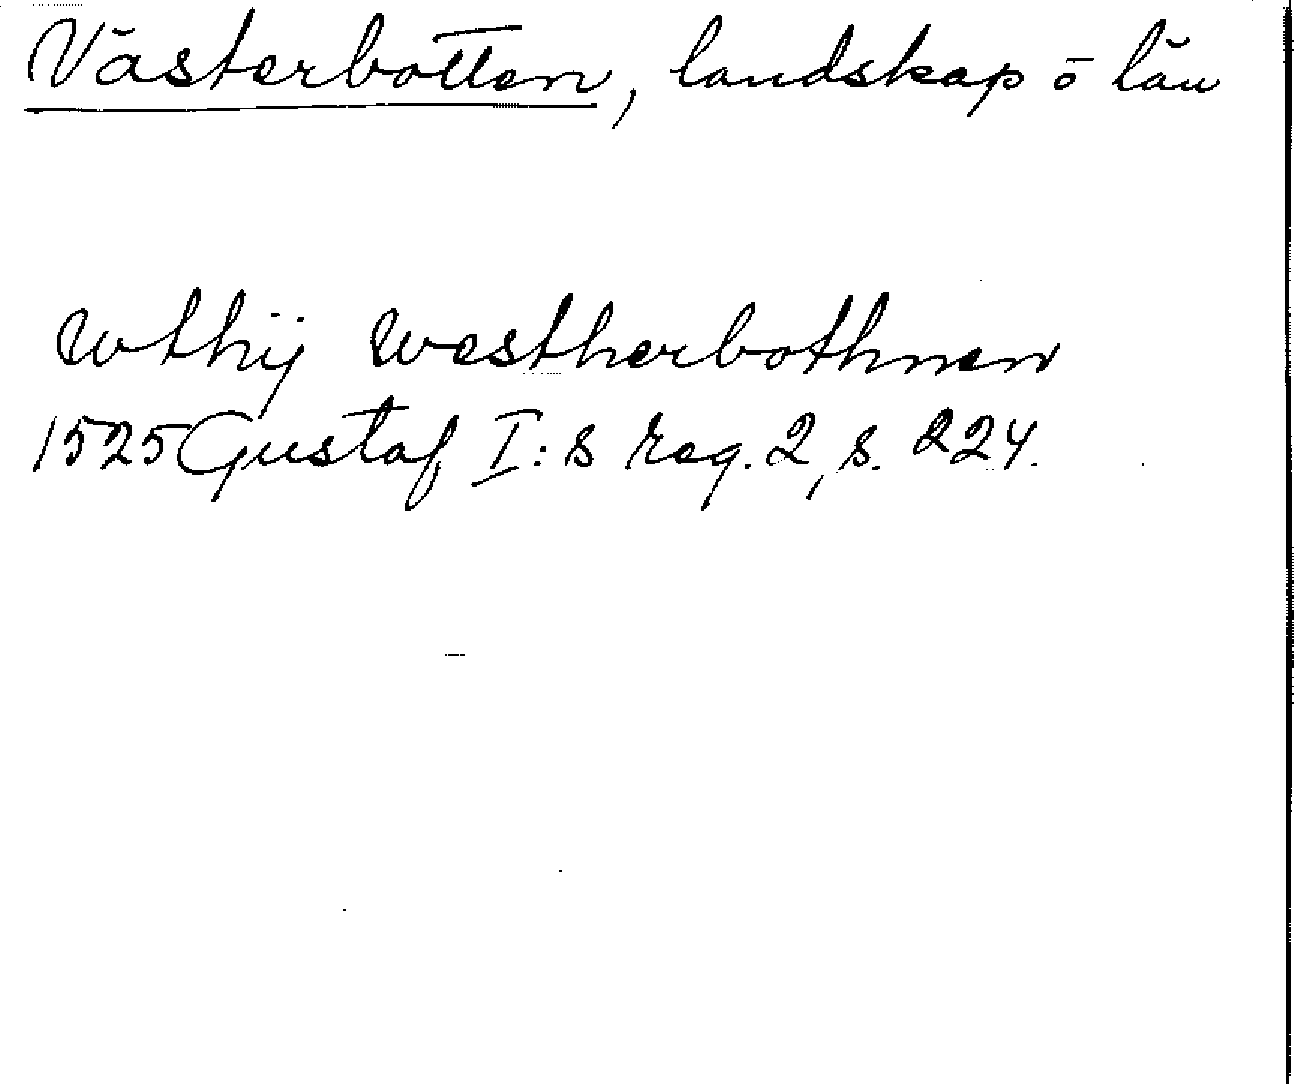 Västerbotten, landskap o län
wthij westherbothnen
1525 Gustaf I:s reg. 2, s. 224.